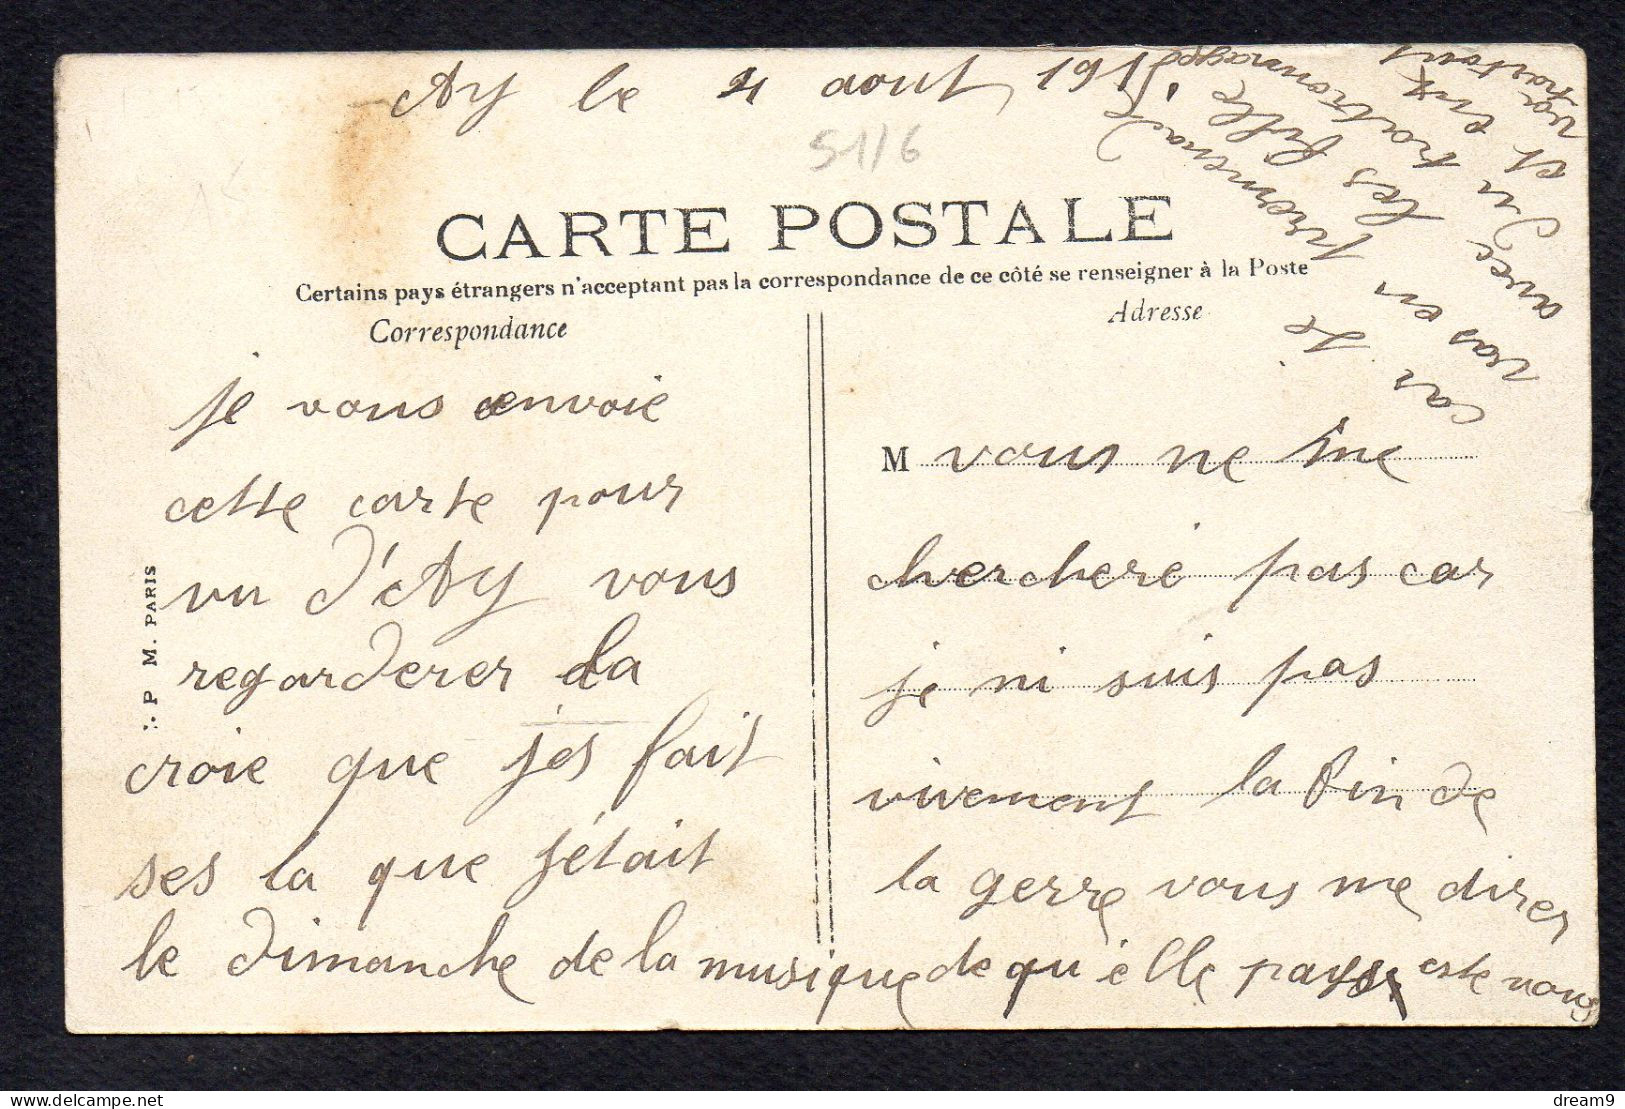 Ay le 4 aout 191
51/6
CARTE POSTALE
Certains pays étrangers n'acceptant pas la correspondance de ce côté se renseigner à la Poste
Correspondance
Adresse
P M. PARIS
je vous envoie
cette carte pour
vu d'Ay vous
regarderer la
croie que jes fait
ses la que j'était
le dimanche de la musique
M vous ne me
chercheré pas car
je ni suis pas
vivement la fin de
la gerre vous me direr
de qu'elle pays este nous
car je
vas en premenade
avec les fille
du patronnage
et eux
va partout
delcampe.net
dream9